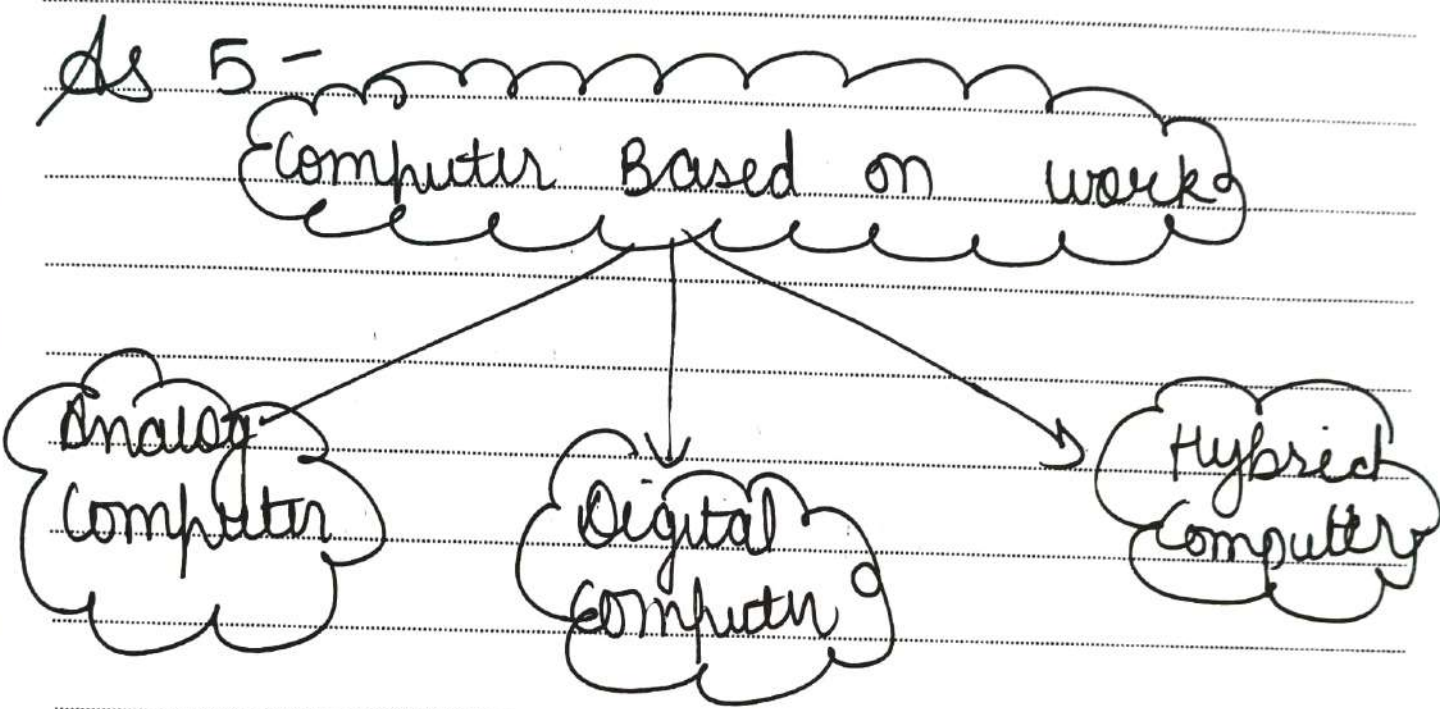 As 5-
Computer Based on work
Analog
Computer
Digital
Computer
Hybrid
Computter